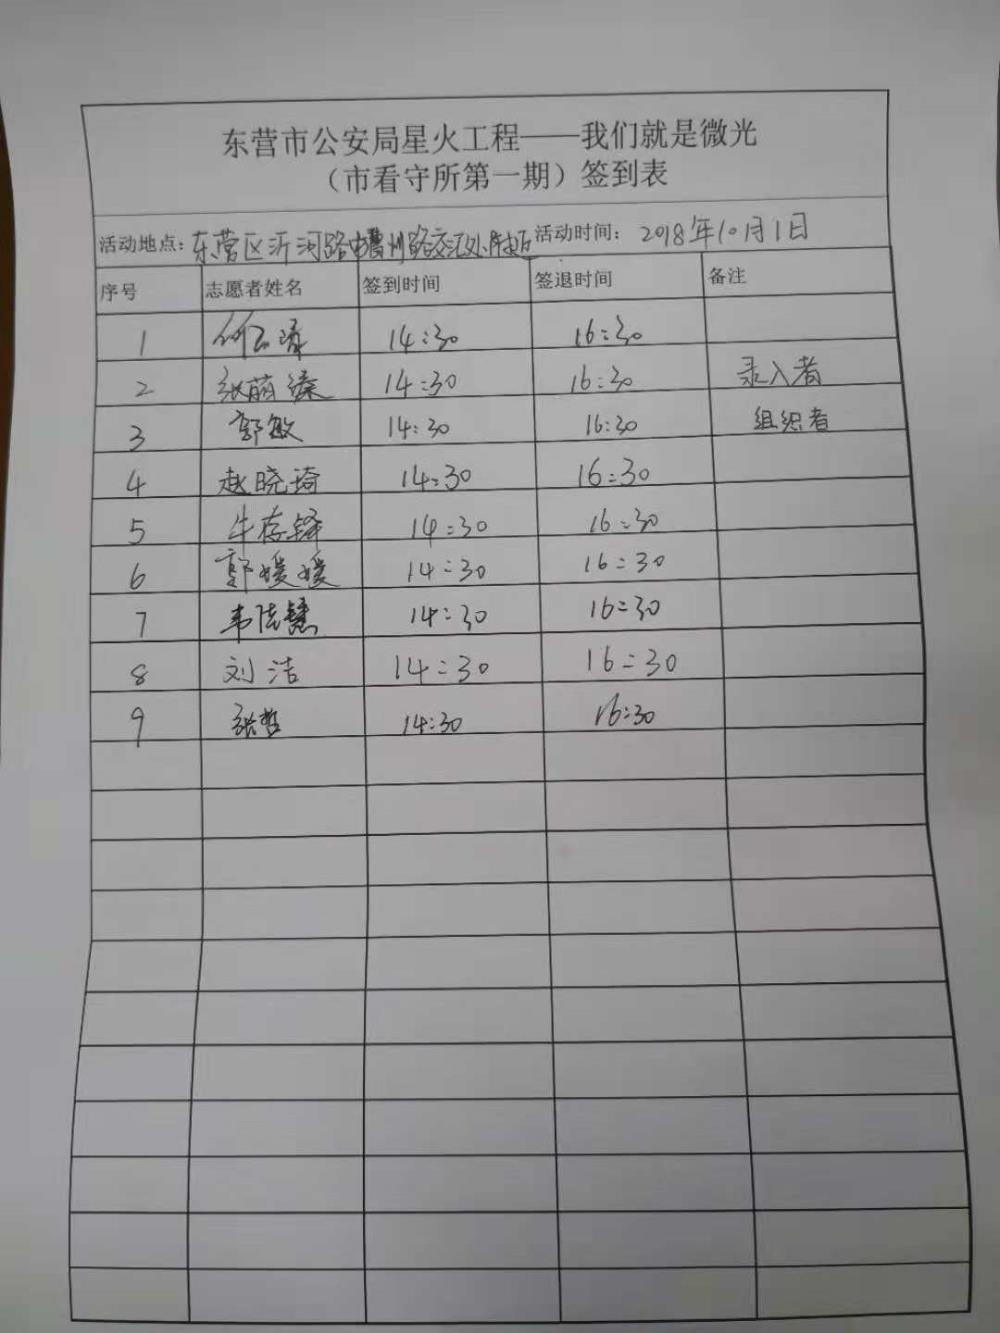 东营市公安局星火工程——我们就是微光
（市看守所第一期）签到表
活动地点：东营区沂河路 州路交汇处 活动时间：2018年10月1日
序号 志愿者姓名 签到时间 签退时间 备注
1 14:30 16:30
2 张萌 14:30 16:30 录入者
3 郭敏 14:30 16:30 组织者
4 赵晓琦 14:30 16:30
5 牛存铎 14:30 16:30
6 郭媛媛 14:30 16:30
7 韦 慧 14:30 16:30
8 刘洁 14:30 16:30
9 张哲 14:30 16:30